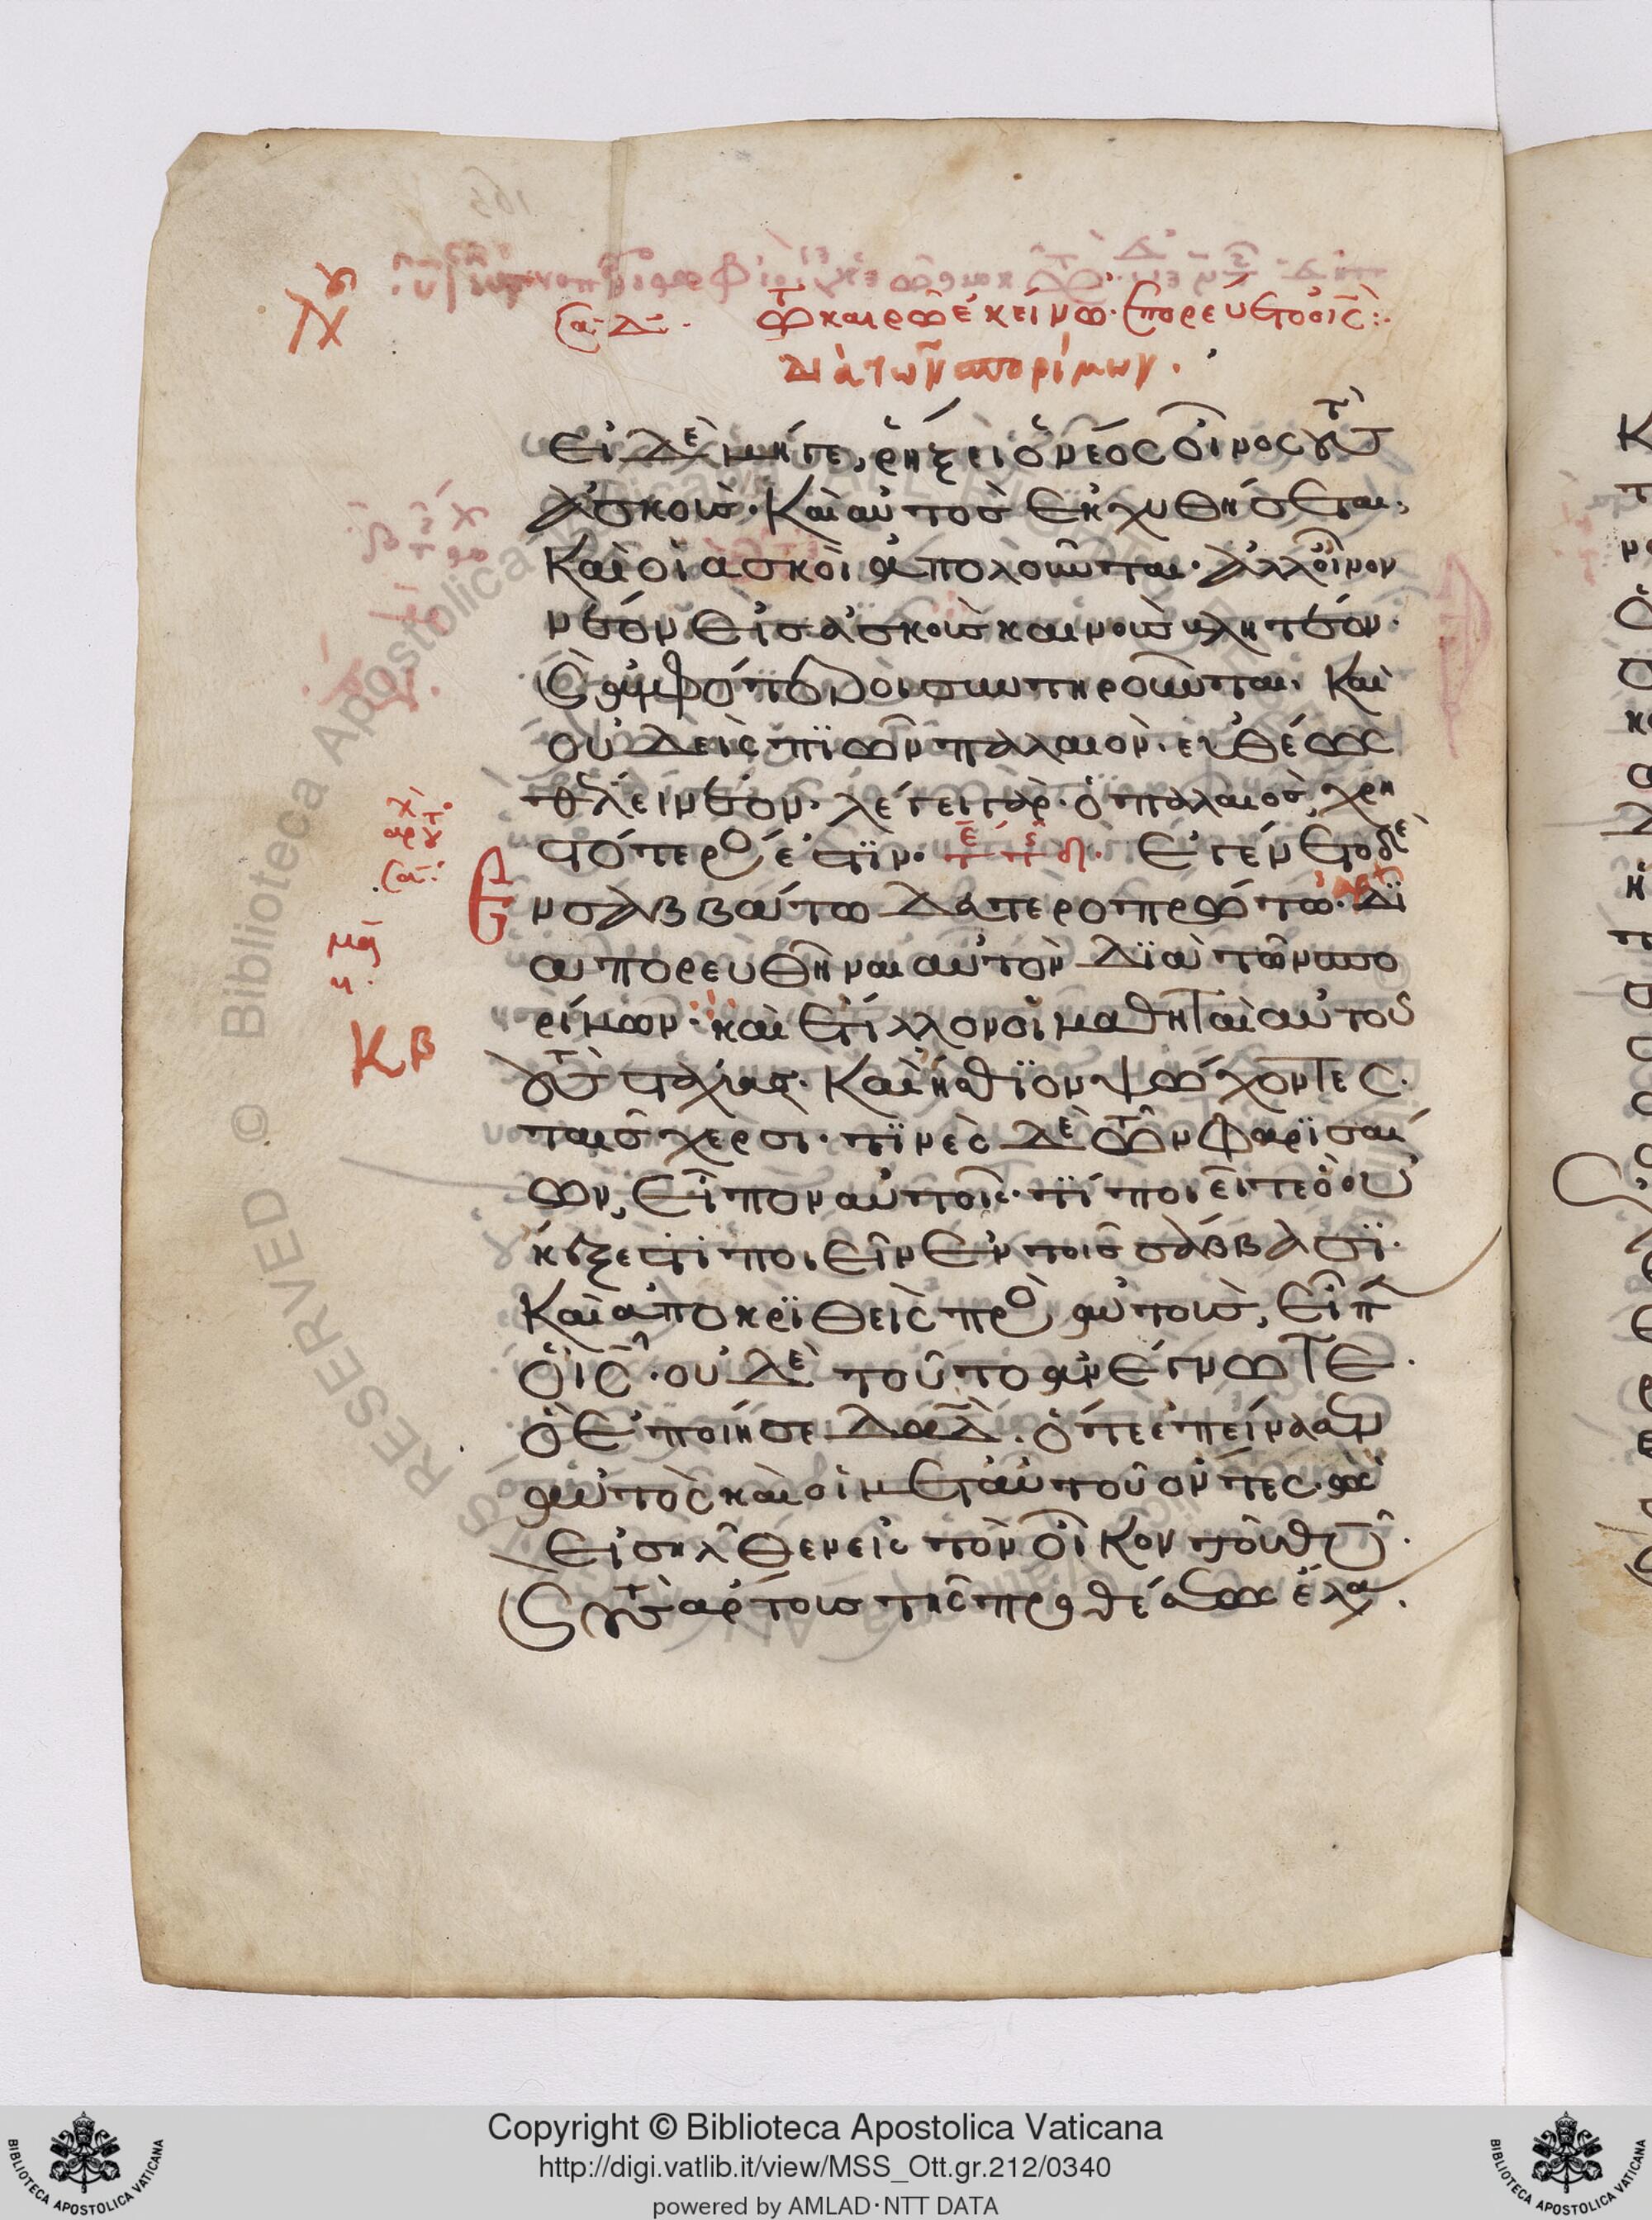 σα Δ τω καιρῶ ἐκείνω· ἐπορεύετο ὁ ις:
διὰ τῶν σπορίμων.
εἰ δὲ μήγε, ῥήξει ὁ νέος οἶνος τοὺς
ἀσκοὺς· Καὶ αὐτὸς ἐκχυθήσεται,
Καὶ οἱ ἀσκοὶ ἀπολοῦνται· ἀλλ οἶνον
νέον εἰς ἀσκοὺς καινοὺς βλητέον·
Καὶ ἀμφότεροι συντηροῦνται. Καὶ
οὐδεὶς πϊὼν παλαιὸν· εὐθέως
θέλει νέον· λέγει γὰρ· ὁ παλαιὸς χρη
στότερος ἐστϊν· Ἐγένετο δὲ
Ἐν σαββάτω δευτεροπρώτω· δϊ
απορευθῆναι αὐτὸν δϊὰ τῶν σπο
ρίμων· καὶ ἔτιλλον οἱ μαθηταὶ αὐτοῦ
τοὺς στάχυας· Καὶ ἤσθϊον ψώχοντες
ταῖς χερσι· τϊνὲς δὲ τῶν φαρϊσαί
ων, εἶπον αὐτοῖς· τϊ ποιεῖτε ὃ οὐ
κ ἔξεστϊ ποιεῖν ἐν τοῖς σάββασϊ·
Καὶ ἀποκρϊθεὶς πρὸς αὐτοὺς, εἶπεν
ὁ ις· οὐδὲ τοῦτο ἀνέγνωτε·
ὃ ἐποίησε δαδ· ὁτε ἐπείνασεν
αὐτὸς καὶ οἱ μετ αὐτοῦ ὄντες· ὡς
εἰσῆλθεν εἰς τὸν οἶκον τοῦ θυ·
Καὶ τοὺς ἄρτους τῆς προθέσεως ἔλα
Κβ
Copyright © Biblioteca Apostolica Vaticana
http://digi.vatlib.it/view/MSS_Ott.gr.212/0340
powered by AMLAD·NTT DATA